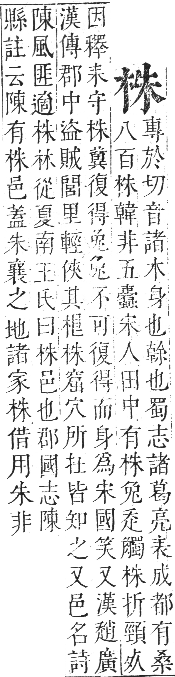 株專於切音諸木身也榦也蜀志諸葛亮表成都有桑
八百株韓非五蠹宋人田中有株兔走觸株折頸
因釋耒守株冀復得兔兔不可復得而身爲宋國笑又漢趙廣
漢傳郡中盜賊閭里輕俠其根株窟穴所在皆知之又邑名詩
陳風匪適株林從夏南王氏曰株邑也郡國志陳
縣註云陳有株邑蓋朱襄之地諸家株借用朱非